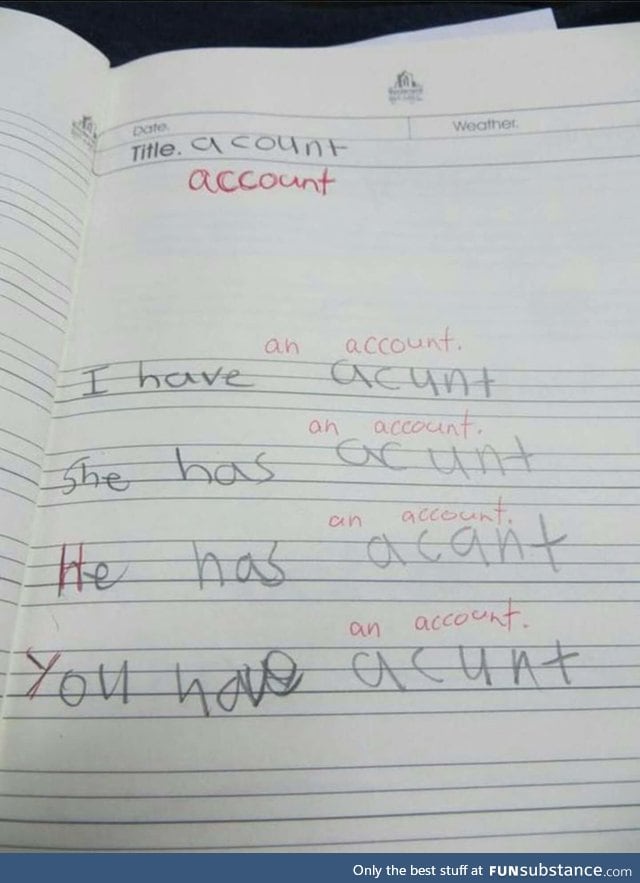 Date.
Weather.
Title. acount
account
an account.
I have acunt
an account.
She has acunt
an account.
He has acant
an account.
You have acunt
Only the best stuff at FUNsubstance.com